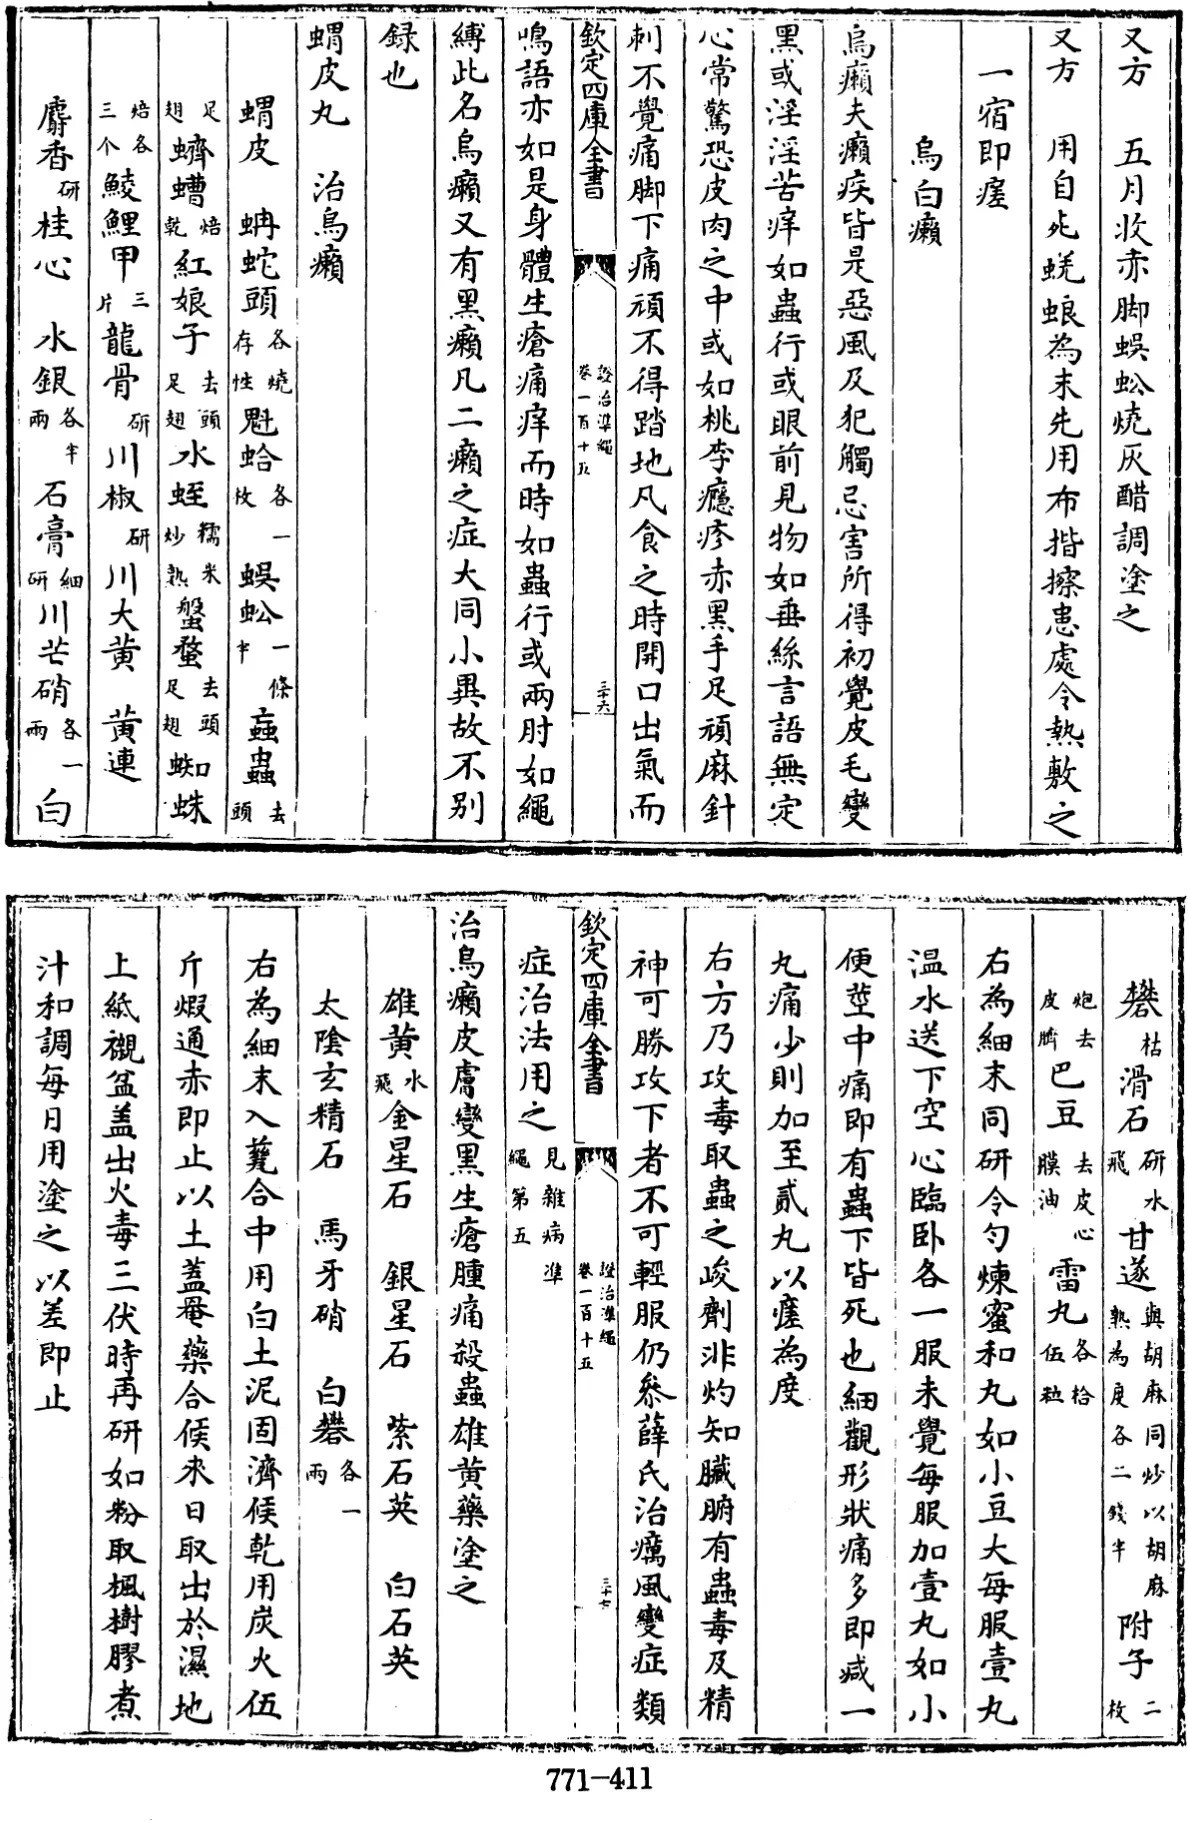 又方　五月收赤脚蜈蚣燒灰醋調塗之
又方　用自死蜣蜋為末先用布揩擦患處令熱敷之
一宿即瘥
烏白癩
烏癩夫癩疾皆是惡風及犯觸忌害所得初覺皮毛變
黑或淫淫苦痒如蟲行或眼前見物如垂絲言語無定
心常驚恐皮肉之中或如桃李癮疹赤黑手足頑麻針
刺不覺痛脚下痛頑不得踏地凡食之時開口出氣而
欽定四庫全書　證治準繩　卷一百十五　三十六
鳴語亦如是身體生瘡痛痒而時如蟲行或兩肘如繩
縛此名烏癩又有黑癩凡二癩之症大同小異故不别
録也
蝟皮丸　治烏癩
蝟皮　蚺蛇頭各燒存性魁蛤各一枚蜈蚣一條半蝱蟲去頭
足翅蠐螬焙乾紅娘子去頭足翅水蛭糯米炒熟螌蝥去頭足翅蜘蛛
焙各三个鯪鯉甲三片龍骨研川椒研川大黄　黄連
麝香研桂心　水銀各半兩石膏細研川芒硝各一兩白
礬枯滑石研水飛甘遂與胡麻同炒以胡麻熟為度各二錢半附子二枚
炮去皮臍巴豆去皮心膜油雷丸各拾伍粒
右為細末同研令勻煉蜜和丸如小豆大每服壹丸
温水送下空心臨卧各一服未覺每服加壹丸如小
便莖中痛即有蟲下皆死也細觀形狀痛多即減一
丸痛少則加至貳丸以瘥為度
右方乃攻毒取蟲之峻劑非灼知臟腑有蟲毒及精
神可勝攻下者不可輕服仍參薛氏治癘風變症類
欽定四庫全書　證治準繩　卷一百十五　三十七
症治法用之見雜病準繩第五
治烏癩皮膚變黑生瘡腫痛殺蟲雄黄藥塗之
雄黄水飛金星石　銀星石　紫石英　白石英
太陰玄精石　馬牙硝　白礬各一兩
右為細末入甆合中用白土泥固濟候乾用炭火伍
斤煅通赤即止以土蓋罨藥合候來日取出於濕地
上紙襯盆盖出火毒三伏時再研如粉取楓樹膠煮
汁和調每日用塗之以差即止
771-411